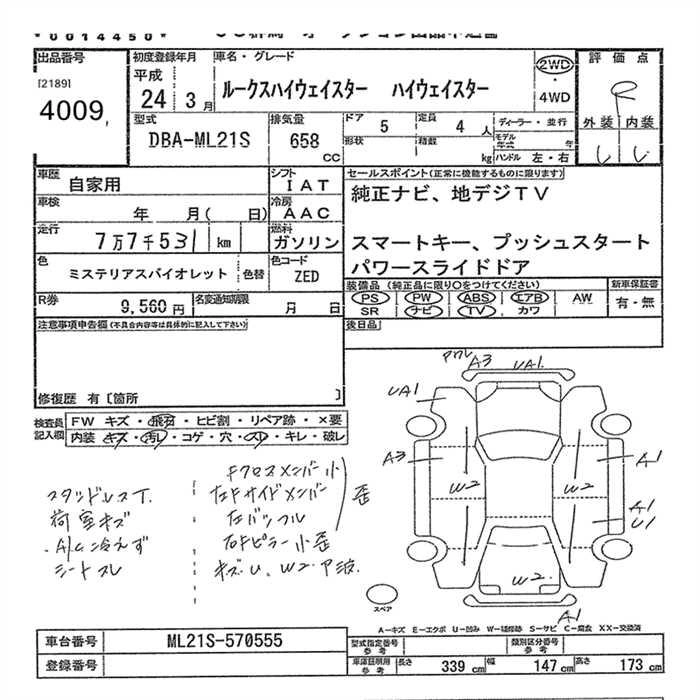 0014450
出品番号 初度登録年月 車名・グレード 評価点
[2189] 平成 2WD
4009 24 3月 ルークスハイウェイスター ハイウェイスター 4WD R
外装 内装
型式 排気量 ドア 5 定員 4人 ディーラー・並行
DBA-ML21S 658 CC 形状 積載 kg モデル年式 年
ハンドル 左・右
車歴 自家用 シフト IAT セールスポイント(正常に機能するものに限ります)
車検 年 月( 日) 冷房 AAC 純正ナビ、地デジTV
走行 7万7千531 km 燃料 ガソリン スマートキー、プッシュスタート
色 ミステリアスバイオレット 色替 色コード ZED パワースライドドア
装備品(純正品に限り○をつけてください) 新車保証書
R券 9,560円 名変通知期限 月 日 PS PW ABS エアB AW 有・無
SR ナビ TV カワ
注意事項申告欄(不具合内容等は具体的に記入して下さい) 後日品
修復歴 有〔箇所 〕
検査員記入欄 FW キズ・飛石・ヒビ割・リペア跡・×要
内装 キズ・汚レ・コゲ・穴・スレ・キレ・破レ
スタッドレスT. Fクロスメンバー小
荷室キズ 左Fサイドメンバー 歪
A/C冷えず
シートスレ 右Fピラー小歪
キズU、W2、P波
A3 UA1.
UA1
A3 A1
W2 W2
A1
U1
W2.
A1
スペア
A-キズ E-エクボ U-凹み W-補修跡 S-サビ C-腐食 XX-交換済
車台番号 ML21S-570555 型式指定番号 参考 類別区分番号 参考
登録番号 車庫証明用 参考 長さ 339cm 幅 147cm 高さ 173cm